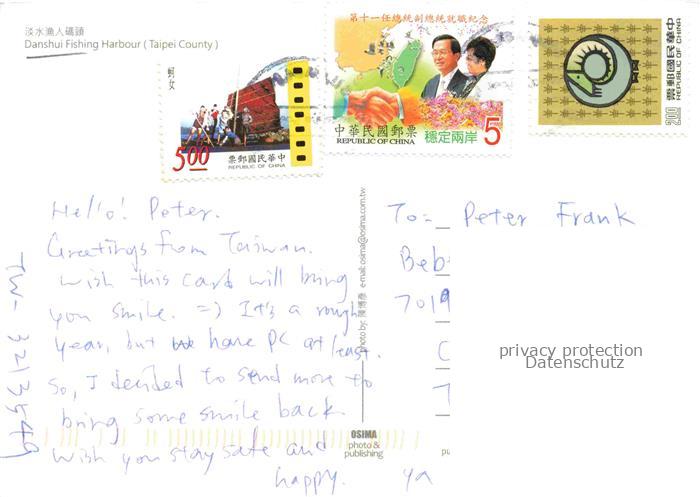 淡水漁人碼頭
Danshui Fishing Harbour ( Taipei County )
蚵女
5.00
中華民國郵票
REPUBLIC OF CHINA
第十一任總統副總統就職紀念
中華民國郵票
REPUBLIC OF CHINA
穩定兩岸
5
中華民國郵票
REPUBLIC OF CHINA
2.00
Hello! Peter.
Greetings from Taiwan.
wish this card will bring
you smile. =) It's a rough
year, but we have PC at least.
So, I decided to send more to
bring some smile back
wish you stay safe and
happy. ya
TW-3213549
photo by: 陳博彥 e-mail: osima@osima.com.tw
OSIMA
photo &
publishing
To: Peter Frank
Beb
7019
privacy protection
Datenschutz